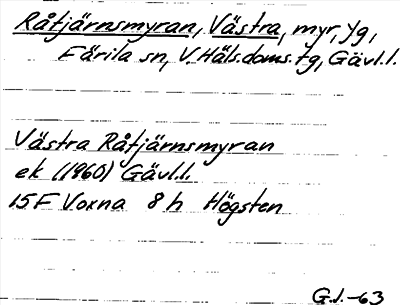 Råtjärnsmyran, Västra, myr, yg,
Färila sn, V. Häls.doms.tg, Gävl.l.
Västra Råtjärnsmyran
ek (1960) Gävl.l.
15F Voxna 8h Högsten
G.l.-63